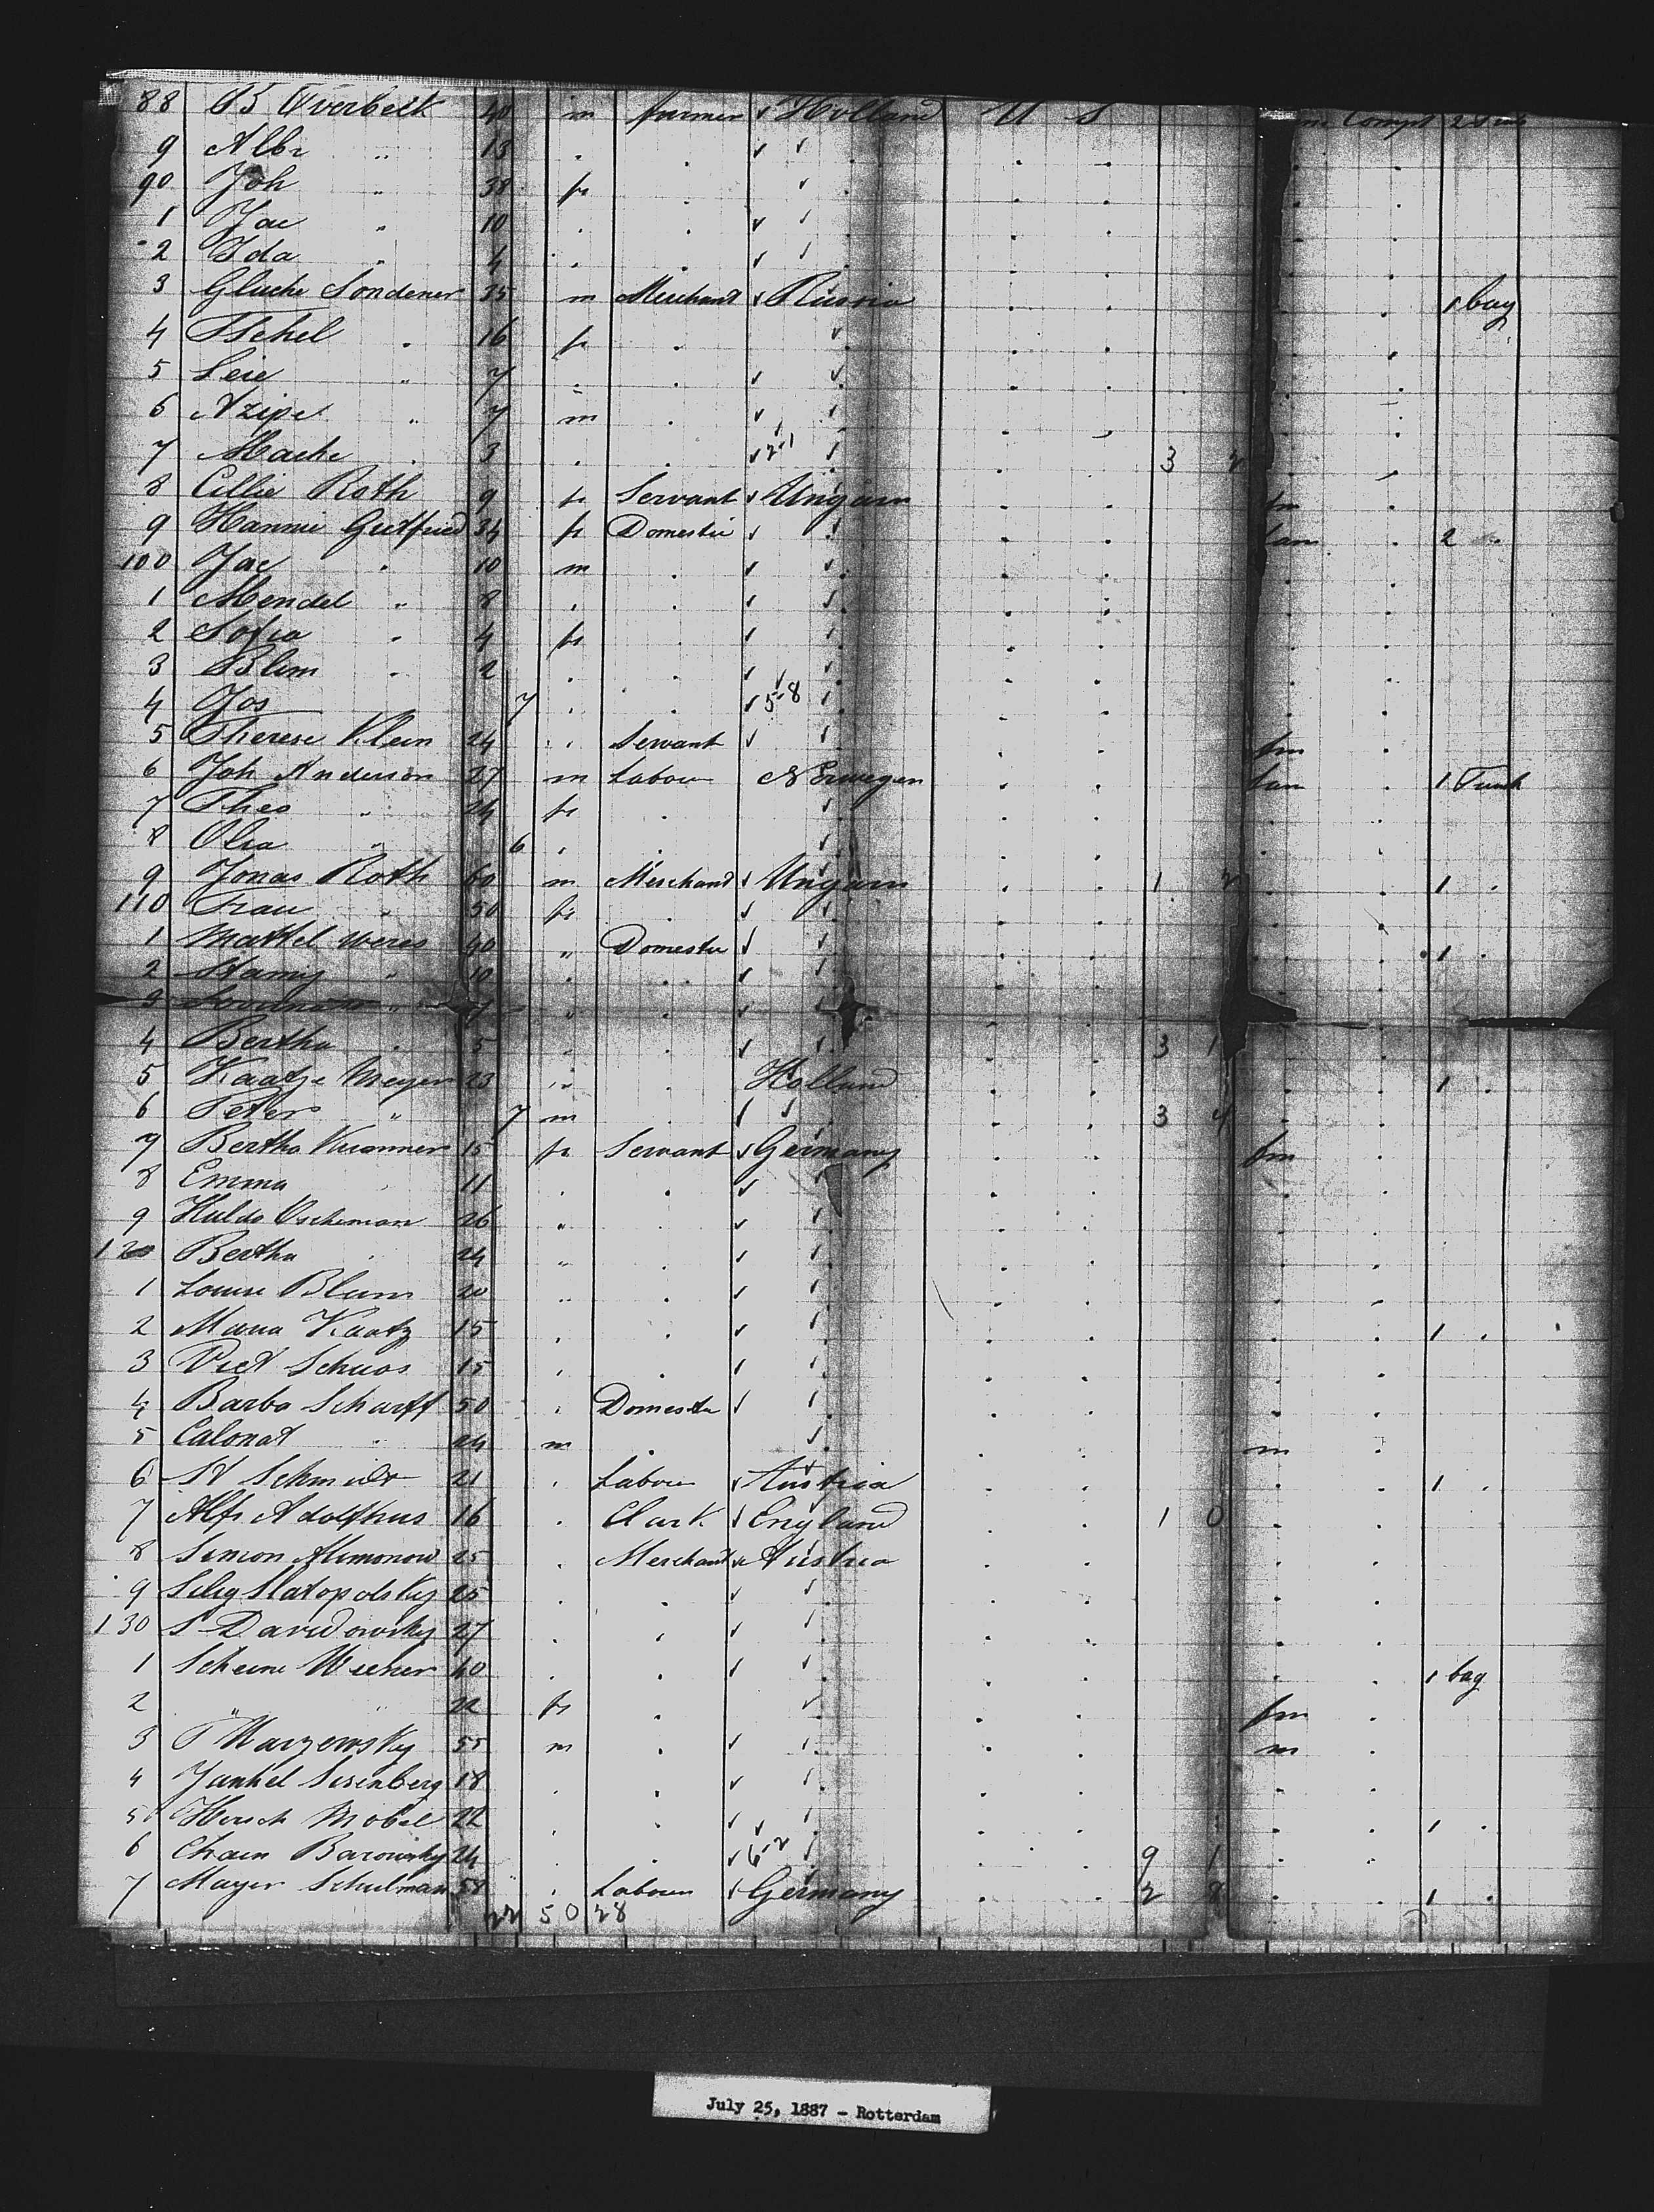 88 B Overbeck 40 m farmer Holland U S Compt 2
9 Albr " 13
90 Joh " 38 fe
1 Jac " 10
2 Ida " 4
3 Gluche Sondener 35 m Merchant Russia 1 bag
4 Tschel " 16 fe
5 Leie " 7
6 Azipe " 7 m
7 Mache " 3 2-1 3 2
8 Cillie Roth 9 fe Servant Ungarn fm
9 Hannie Gutfried 34 fe Domestic fam 2
100 Jac " 10 m
1 Mendel " 8
2 Sofia " 4 fe
3 Blim " 2
4 Jos 7 5-8
5 Therese Klein 24 Servant fm
6 Joh Anderson 27 m Labour Norwegen fam 1 Trunk
7 Theo " 24 fe
8 Olia " 6
9 Jonas Roth 60 m Merchand Ungarn 1 2 1
110 Frau " 50 fe
1 Mattel Weres 40 " Domestic 1
2 Hamy " 10
3 " 7
4 Bertha " 5 3 1
5 Kaatze Meyer 23 Holland 1
6 Peter " 7 m 3 4
7 Bertha Krammer 15 fe Servant Germany fm
8 Emma 11
9 Hulda Uscheman 26
120 Bertha " 24
1 Louise Blum 20
2 Maria Kaatz 15 1
3 Vict Schuos 15
4 Barba Scharff 50 Domestic
5 Calonat " 24 m m
6 St Schmidt 21 Labour Austria 1
7 Alfr Adolfhus 16 Clark England 1 0
8 Simon Mimonow 25 Merchant Austria
9 Selig Slatopolsky 25
130 S Davidowsky 27
1 Scheine Wiener 40 1 bag
2 " " 22 fe fm
3 T Warzewsky 55 m m
4 Jankel Sisenberg 18
5 Hersch Mobel 22 1
6 Chain Barowsky 24 6-2 9 1
7 Mayer Schulman 58 Labour Germany 2 8 1
22 50 28
July 25, 1887 - Rotterdam